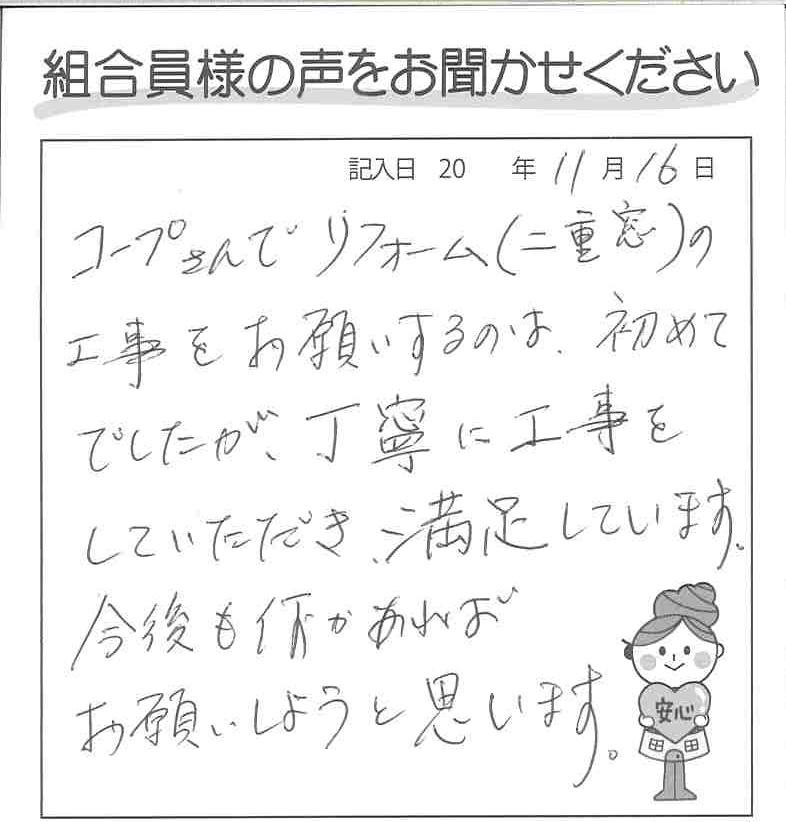 組合員様の声をお聞かせください
記入日 20 年 11 月 16 日
コープさんで リフォーム(二重窓)の
工事をお願いするのは、初めて
でしたが、丁寧に工事を
していただき、満足しています。
今後も何かあれば
お願いしようと思います。
安心